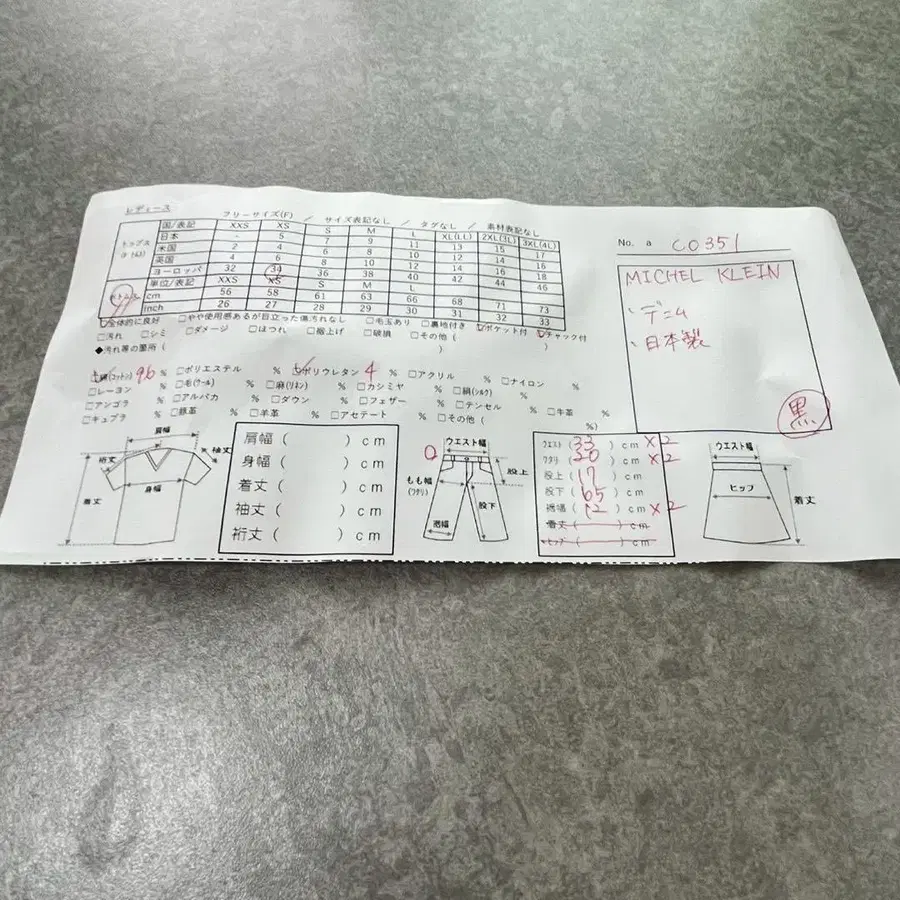 レディース
フリーサイズ(F) / サイズ表記なし / タグなし / 素材表記なし
No. a CO351
トップス
国/表記 XXS XS S M L XL(LL) 2XL(3L) 3XL(4L)
日本 - 5 7 9 11 13 15 17
米国 2 4 6 8 10 12 14 16
英国 4 6 8 10 12 14 16 18
ヨーロッパ 32 34 36 38 40 42 44 46
単位/表記 XXS XS S M L
cm 56 58 61 63 66 68 71 73
inch 26 27 28 29 30 31 32 33
MICHEL KLEIN
・デニム
・日本製
黒
全体的に良好 □やや使用感あるが目立った傷汚れなし □毛玉あり □裏地付き ポケット付 チャック付
□汚れ □シミ □ダメージ □ほつれ □裾上げ □破損 □その他( )
◆汚れ等の箇所( )
綿(コットン) 96 % □ポリエステル % ポリウレタン 4 % □アクリル % □ナイロン %
□レーヨン % □毛(ウール) % □麻(リネン) % □カシミヤ % □絹(シルク) %
□アンゴラ % □アルパカ % □ダウン % □フェザー % □テンセル % □牛革 %
□キュプラ % □豚革 % □羊革 % □アセテート % □その他( %)
肩幅
袖丈
裄丈
着丈
身幅
肩幅( )cm
身幅( )cm
着丈( )cm
袖丈( )cm
裄丈( )cm
ウエスト幅
股上
もも幅
(ワタリ)
股下
裾幅
ウエスト(33)cm ×2
ワタリ(20)cm ×2
股上(17)cm
股下(65)cm
裾幅(12)cm ×2
着丈( )cm
ヒップ( )cm
ウエスト幅
ヒップ
着丈